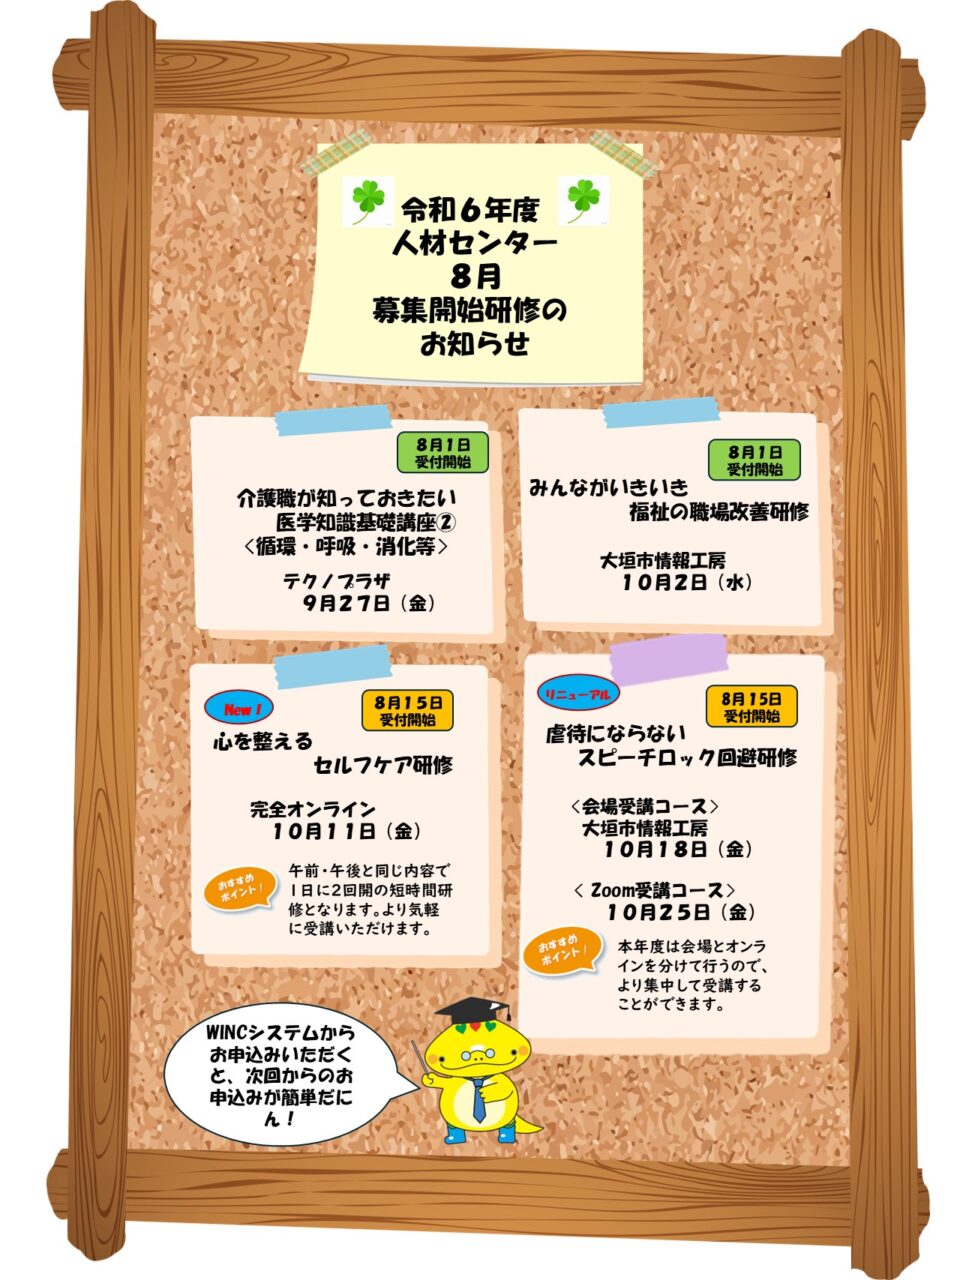 令和６年度
人材センター
８月
募集開始研修の
お知らせ
８月１日
受付開始
介護職が知っておきたい
医学知識基礎講座②
＜循環・呼吸・消化等＞
テクノプラザ
９月２７日（金）
８月１日
受付開始
みんながいきいき
福祉の職場改善研修
大垣市情報工房
１０月２日（水）
New！
８月１５日
受付開始
心を整える
セルフケア研修
完全オンライン
１０月１１日（金）
おすすめ
ポイント！
午前・午後と同じ内容で
１日に２回開の短時間研
修となります。より気軽
に受講いただけます。
リニューアル
８月１５日
受付開始
虐待にならない
スピーチロック回避研修
＜会場受講コース＞
大垣市情報工房
１０月１８日（金）
＜ Zoom受講コース＞
１０月２５日（金）
おすすめ
ポイント！
本年度は会場とオンラ
インを分けて行うので、
より集中して受講する
ことができます。
WINCシステムから
お申込みいただく
と、次回からのお
申込みが簡単だに
ん！